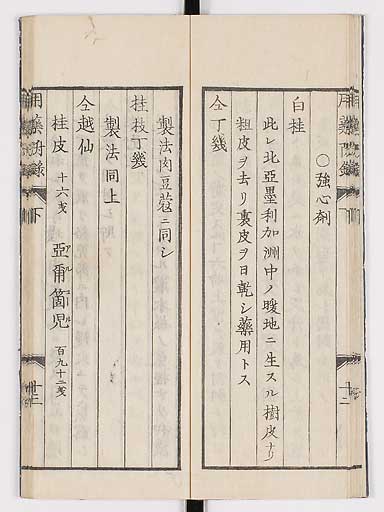 ○強心剤
白桂
此レ北亞墨利加洲中ノ暖地ニ生スル樹皮ナリ
粗皮ヲ去リ裏皮ヲ日乾シ藥用トス
仝丁幾
製法肉豆蔻ニ同シ
桂枝丁幾
製法同上
仝越仙
桂皮 十六戔 亞爾箇兒 百九十二戔
アルコール
下